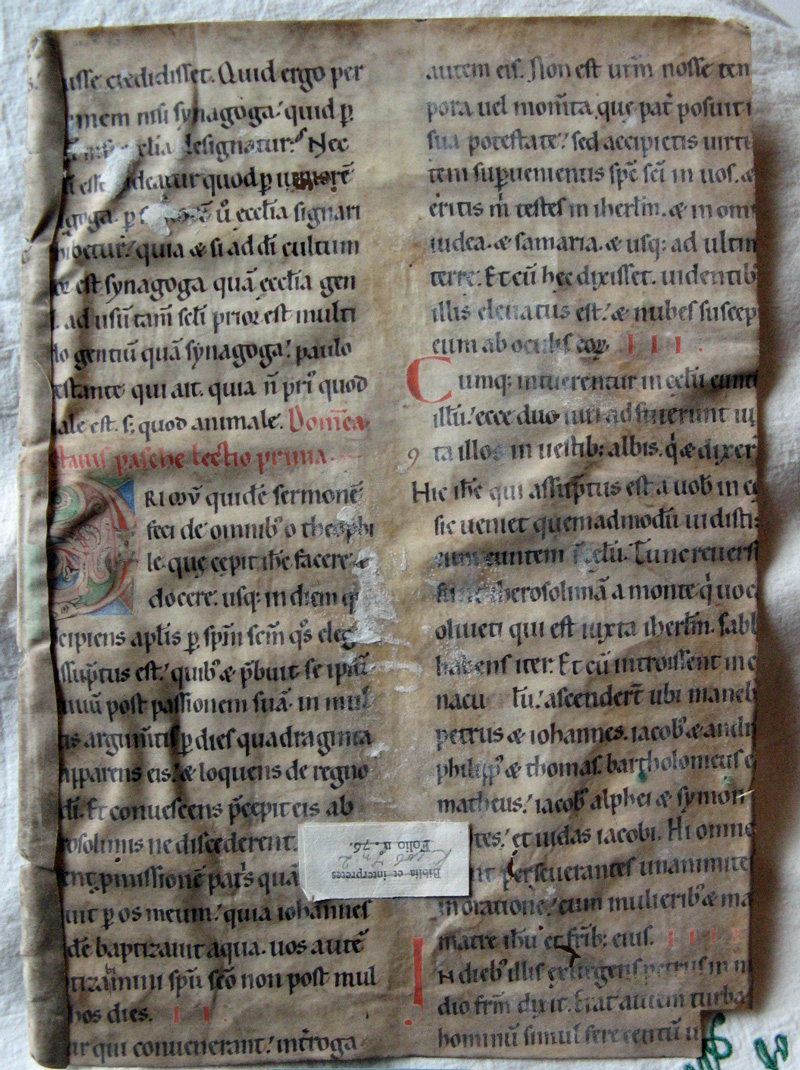 uisse credidisset. Quid ergo per
nisi synagoga. quid p̄
clia designatur? Nec
quod p̄
goga. p̄ ū ecclia signari
hibetur. quia & si ad dī cultum
est synagoga quā ecclia gen
ad usū tam̄ scl̄i prior est multi
gentiū quā synagoga. paulo
testante qui ait. quia n̄ pri᷒ quod
ale est. s; quod animale. Domīca
octauis pasche lectio prima.
PRIMV̄ quidē sermonē
feci de omnib᷒ o theophi
le. que cepit ih̄c facere &
docere. usq; in diem q
cipiens apl̄is p̄ sp̄m sc̄m q᷒s eleg
ssūptus est. quib᷒ & p̄buit se ip̄m
uiuū post passionem suā. in mul
is argum̄tis p̄ dies quadraginta
apparens eis. & loquens de regno
dī. Et conuescens p̄cepit eis ab
rosolimis ne discederent.
p̄missionē pat̄s quā
uit p̄ os meum. quia iohannes
dē baptizauit aqua. uos autē
tizamini sp̄u sc̄o non post mul
hos dies. II.
ur qui conuenerant. int̄roga
autem eis. Non est ur̄m nosse tem
pora uel mom̄ta que pat̄ posuit i
sua potestate. sed accipietis uirtu
tem sup̄uenientis sp̄c sc̄i in uos. &
eritis m̄ testes in iherl̄m. & in omi
iudea. & samaria. & usq; ad ultim
terre. Et cū hec dixisset. uidentib
illis eleuatus est. & nubes suscep
eum ab oculis eoꝝ. III.
Cumq; intuerentur in celū eunte
illū. ecce duo uiri adstiterunt iu
ta illos in uestib; albis. q̄ & dixer
Hic ih̄c qui assūptus est a uob in ce
sic ueniet quemadmodū uidisti
eum euntem celū. Tunc reuersi
iherosolimā a monte q̄ uoc
oliueti qui est iuxta iherl̄m. sabb
habens iter. Et cū introissent in c
nacu lū. ascendert̄ ubi maneb
petrus & iohannes. iacob᷒ & andr
philipp᷒ & thomas. bartholomeus &
matheus. iacob᷒ alphei & symon
tes. et iudas iacobi. Hi omne
perseuerantes unanimite
in oratione. cum mulierib᷒ & ma
matre ihū et fr̄ib; eius. IIII
In dieb᷒ illis exurgens petrus in m
dio fr̄m dixit. Erat autem turba
hominū simul fere centū u
Biblia et interpretes
Folio n. 76.